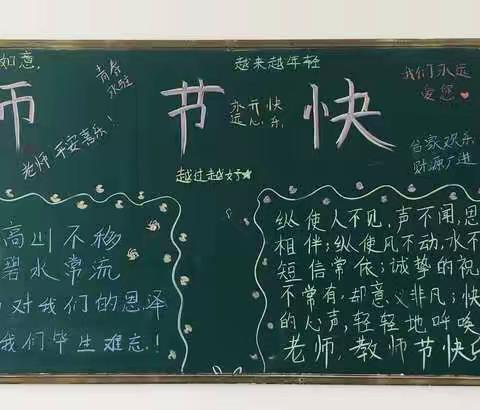 如意,
青春
永驻
越来越年轻
我们永远
爱您
师 节 快
永开快
远心乐
老师平安喜乐!
合家欢乐
财源广进
越过越好
高山不移
碧水常流
对我们的恩泽
我们毕生难忘!
纵使人不见,声不闻,思
相伴;纵使风不动,水不
短信常依;诚挚的祝
不常有,却意义非凡;快
的心声,轻轻地呼唤
老师,教师节快